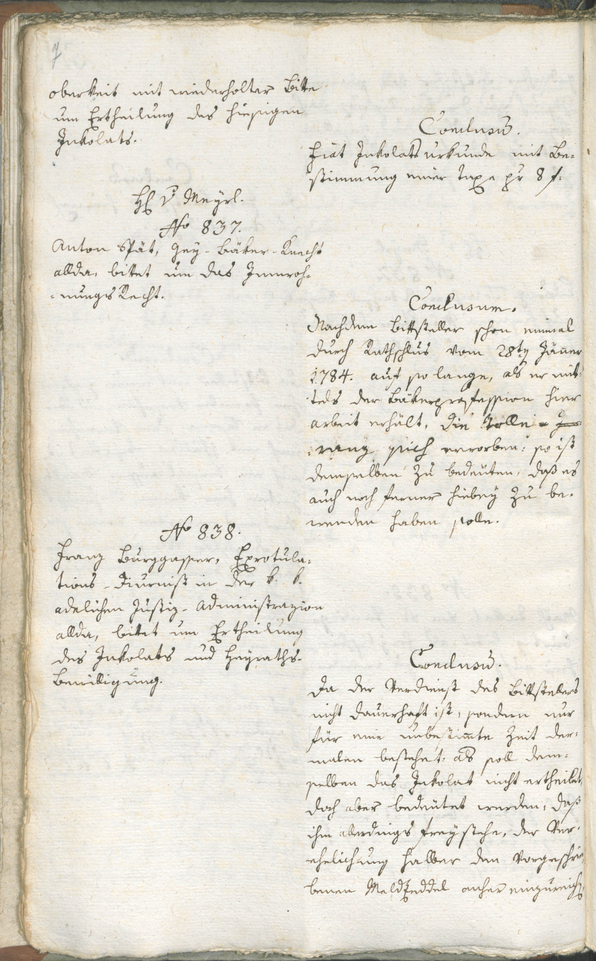 7
oberkeit mit niederholter Bitte
um Ertheilung des hiesigen
Inkolats.
Conclusū.
Fiat Inkolatsurkunde mit Be-
stimmung einer Taxe pr 8 f.
H v Mayrl.
No 837.
Anton Spät, Bäker-Knecht
allda, bitet um das Innwoh-
nungsRecht.
Conclusum.
Nachdem Bittsteller schon einmal
durch Rathschlus vom 28ten Jänner
1784. auf so lange, als er mit-
tels der Bäkerprofession hier
arbeit erhält, die
erworben; so ist
demselben zu bedeuten, daß es
auch noch ferner hiebey zu be-
wenden haben solle.
No 838.
Franz Burggasser, Exrotula-
tions-Diurnist in der k. k.
adelichen Justiz-Administrazion
allda, bitet um Ertheilung
des Inkolats und Heyraths-
Bewilligung.
Conclusū.
Da der Verdienst des Bittstellers
nicht dauerhaft ist, sondern nur
für eine unbestimte Zeit der-
malen bestehet: als soll dem-
selben das Inkolat nicht ertheilet,
doch aber bedeutet werden, daß
ihm allerdings freystehe, der Ver-
ehelichung halber den vorgeschrie
benen Meldzeddel anher einzureich